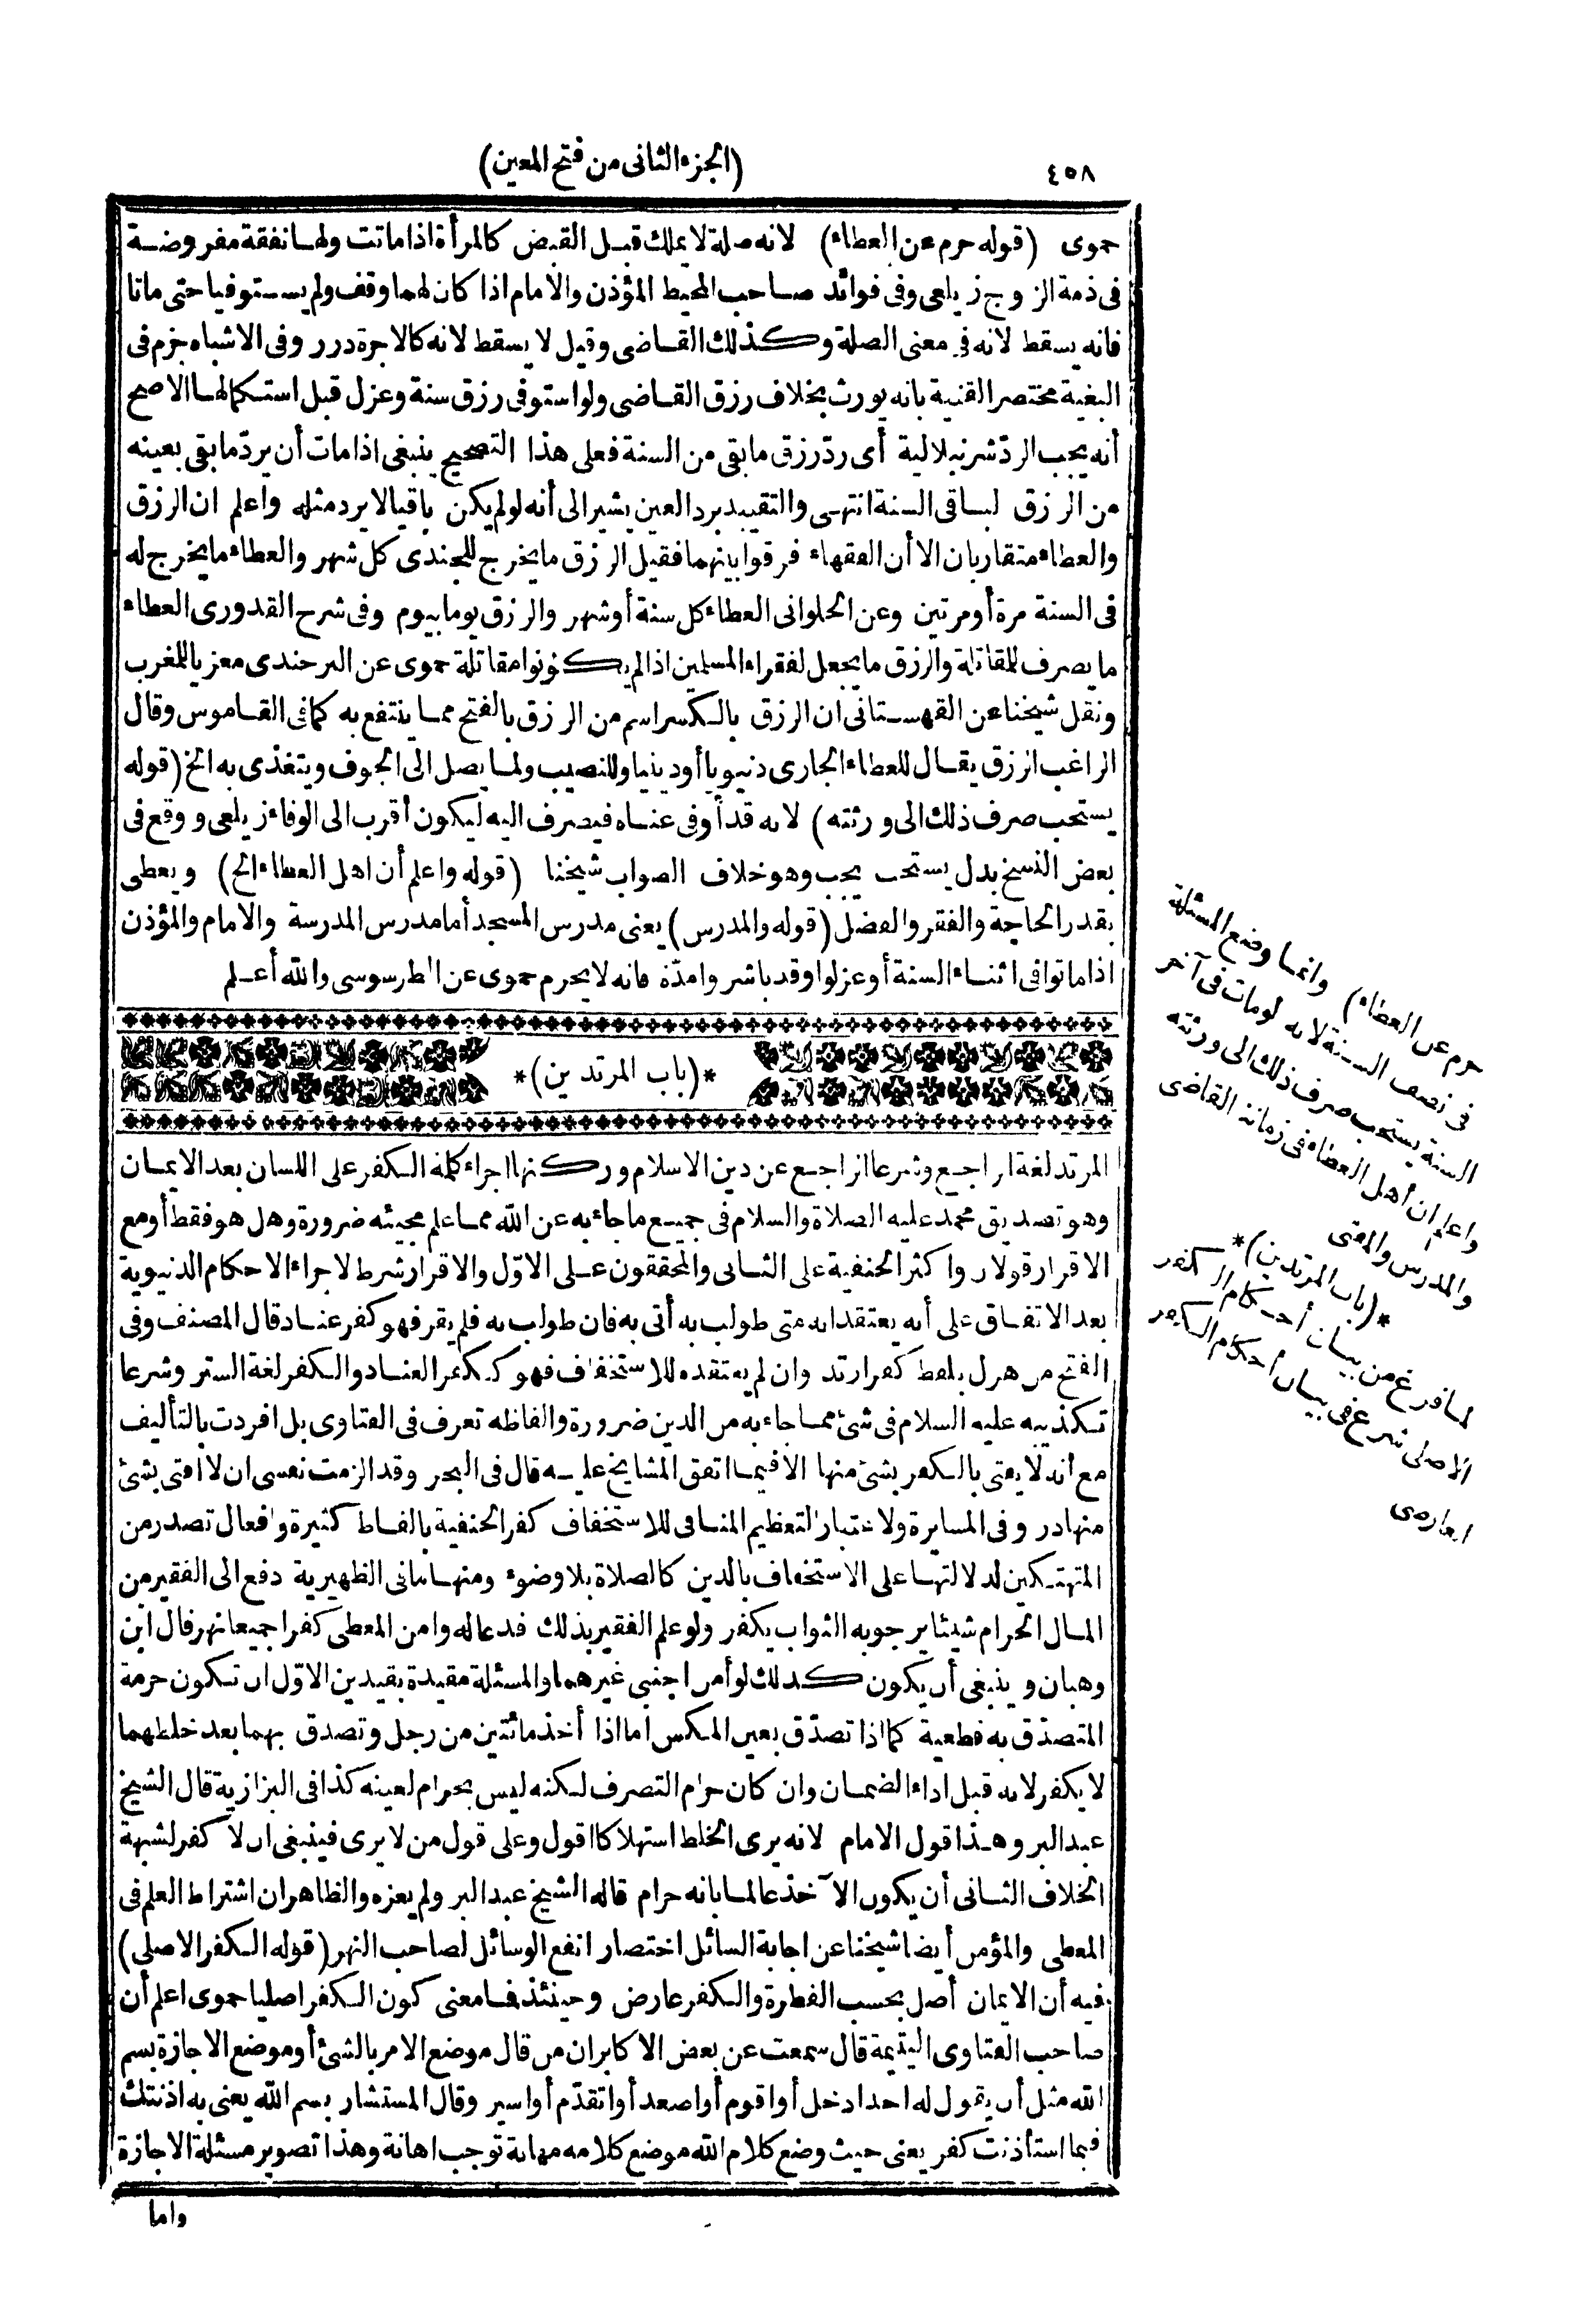 ٤٥٨
(الجزء الثانى من فتح المعين)
حموى (قوله حرم عن العطاء) لانه صلة لا يملك قبل القبض كالمرأة اذا ماتت ولها نفقة مفروضة
فى ذمة الزوج زيلعى وفى فوائد صاحب المحيط المؤذن والامام اذا كان لهما وقف ولم يستوفيا حتى ماتا
فانه يسقط لانه فى معنى الصلة وكذلك القاضى وقيل لا يسقط لانه كالاجرة درر وفى الاشباه جزم فى
البغية مختصر القنية بانه يورث بخلاف رزق القاضى ولو استوفى رزق سنة وعزل قبل استكمالها الاصح
أنه يجب الردّ شرنبلالية أى ردّ رزق ما بقى من السنة فعلى هذا التصحيح ينبغى اذا مات أن يردّ ما بقى بعينه
من الرزق لباقى السنة انتهى والتقييد برد العين يشير الى أنه لو لم يكن باقيا لا يرد مثله واعلم ان الرزق
والعطاء متقاربان الا أن الفقهاء فرقوا بينهما فقيل الرزق ما يخرج للجندى كل شهر والعطاء ما يخرج له
فى السنة مرة أو مرتين وعن الحلوانى العطاء كل سنة أو شهر والرزق يوما بيوم وفى شرح القدورى العطاء
ما يصرف للمقاتلة والرزق ما يجعل لفقراء المسلمين اذا لم يكونوا مقاتلة حموى عن البرجندى معزيا للمغرب
ونقل شيخنا عن القهستانى ان الرزق بالكسر اسم من الرزق بالفتح مما ينتفع به كما فى القاموس وقال
الراغب الرزق يقال للعطاء الجارى دنيويا أو دينيا وللنصيب ولما يصل الى الجوف ويتغذى به الخ (قوله
يستحب صرف ذلك الى ورثته) لانه قد أوفى عناه فيصرف اليه ليكون أقرب الى الوفاء زيلعى ووقع فى
بعض النسخ بدل يستحب يجب وهو خلاف الصواب شيخنا (قوله واعلم أن اهل العطاء الخ) ويعطى
بقدر الحاجة والفقر والفضل (قوله والمدرس) يعنى مدرس المسجد أما مدرس المدرسة والامام والمؤذن
اذا ماتوا فى اثناء السنة أو عزلوا وقد باشروا مدّة فانه لا يحرم حموى عن الطرسوسى والله أعلم
*(باب المرتدين)*
المرتد لغة الراجع وشرعا الراجع عن دين الاسلام وركنها اجراء كلمة الكفر على اللسان بعد الايمان
وهو تصديق محمد عليه الصلاة والسلام فى جميع ما جاء به عن الله مما علم مجيئه ضرورة وهل هو فقط أو مع
الاقرار قولان واكثر الحنفية على الثانى والمحققون على الاوّل والاقرار شرط لاجراء الاحكام الدنيوية
بعد الاتفاق على أنه يعتقد انه متى طولب به أتى به فان طولب به فلم يقر فهو كفر عناد قال المصنف وفى
الفتح من هزل بلفظ كفر ارتد وان لم يعتقده للاستخفاف فهو ككفر العناد والكفر لغة الستر وشرعا
تكذيبه عليه السلام فى شئ مما جاء به من الدين ضرورة والفاظه تعرف فى الفتاوى بل افردت بالتأليف
مع أنه لا يفتى بالكفر بشئ منها الا فيما اتفق المشايخ عليه قال فى البحر وقد الزمت نفسى ان لا افتى بشئ
منها در وفى المسايرة ولاعتبار التعظيم المنافى للاستخفاف كفر الحنفية بالفاظ كثيرة وافعال تصدر من
المتهتكين لدلالتها على الاستخفاف بالدين كالصلاة بلا وضوء ومنها ما فى الظهيرية دفع الى الفقير من
المال الحرام شيئا يرجو به الثواب يكفر ولو علم الفقير بذلك فدعا له وامن المعطى كفرا جميعا نهر قال ابن
وهبان وينبغى أن يكون كذلك لو أمن اجنبى غيرهما والمسئلة مقيدة بقيدين الاوّل ان تكون حرمة
المتصدّق به قطعية كما اذا تصدّق بعين المكس اما اذا أخذ مائتين من رجل وتصدق بهما بعد خلطهما
لا يكفر لانه قبل اداء الضمان وان كان حرام التصرف لكنه ليس بحرام لعينه كذا فى البزازية قال الشيخ
عبد البر وهذا قول الامام لانه يرى الخلط استهلاكا اقول وعلى قول من لا يرى فينبغى ان لا كفر لشبهة
الخلاف الثانى أن يكون الآخذ عالما بانه حرام قاله الشيخ عبد البر ولم يعزه والظاهر ان اشتراط العلم فى
المعطى والمؤمن أيضا شيخنا عن اجابة السائل اختصار انفع الوسائل لصاحب النهر (قوله الكفر الاصلى)
فيه أن الايمان أصل بحسب الفطرة والكفر عارض وحينئذ فما معنى كون الكفر اصليا حموى اعلم أن
صاحب الفتاوى اليتيمة قال سمعت عن بعض الاكابر ان من قال موضع الامر بالشئ أو موضع الاجازة بسم
الله مثل أن يقول له احد ادخل أو اقوم أو اصعد أو اتقدّم أو اسير وقال المستشار بسم الله يعنى به اذنتك
فيما استأذنت كفر يعنى حيث وضع كلام الله موضع كلامه مهانة توجب اهانة وهذا تصوير مسئلة الاجازة
واما
حرم عن العطاء) وانما وضع المسئلة
فى نصف السنة لانه لو مات فى آخر
السنة يستحب صرف ذلك الى ورثته
واعلم ان أهل العطاء فى زماننا القاضى
والمدرس والمفتى
*(باب المرتدين)*
لما فرغ من بيان أحكام الكفر
الاصلى شرع فى بيان أحكام الكفر
العارضى